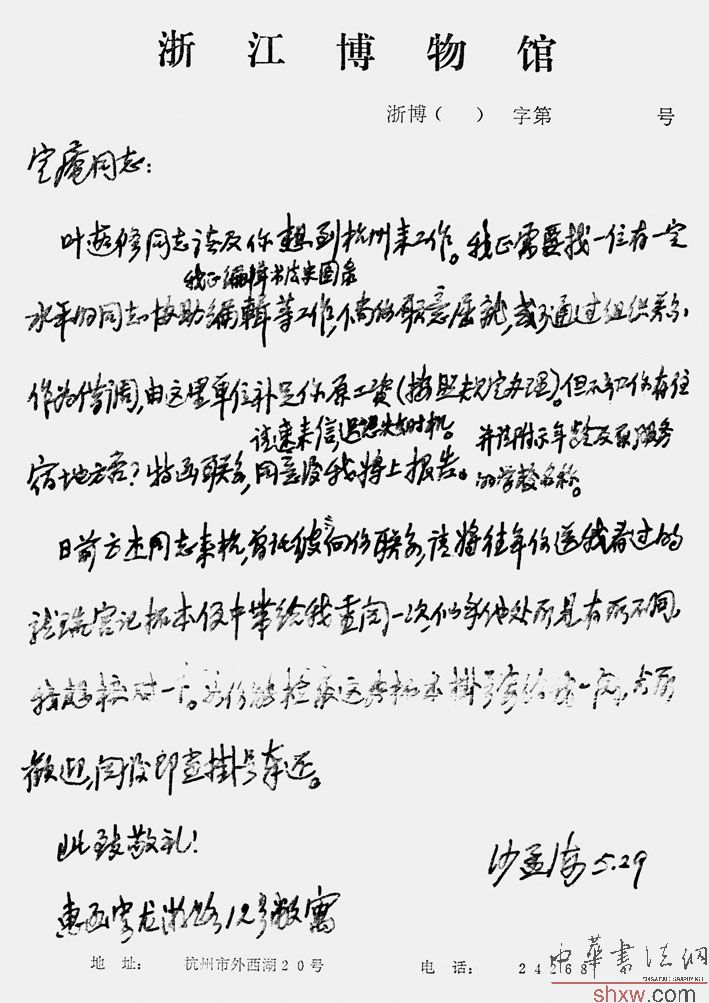 浙江博物馆
浙博（ ）字第 号
定庵同志：
叶遐修同志谈及你想到杭州来工作。我正需要找一位有一定
我正编辑书法史图录
水平的同志协助编辑等工作，倘你愿意屈就，或可通过组织联系，
作为借调，由这里单位补足你原工资（按照规定办理）。但不知你有住
请速来信，迟恐失时机。 并请附示年龄及原服务
宿地方否？特函联系，同意后我将上报告。的学校名称。
日前方杰同志来杭，曾托彼向你联系，请将往年你送我看过的
龙瑞宫记拓本便中带给我重阅一次，似乎他处所见有所不同，
我想核对一下。如你能检出这类拓本挂号寄给我一阅，尤所
欢迎，阅后即当挂号奉还。
此致敬礼！
沙孟海 5.29
惠函寄龙游路12号敝寓
地 址： 杭州市外西湖20号 电 话： 24268
中華書法網
shxw.com